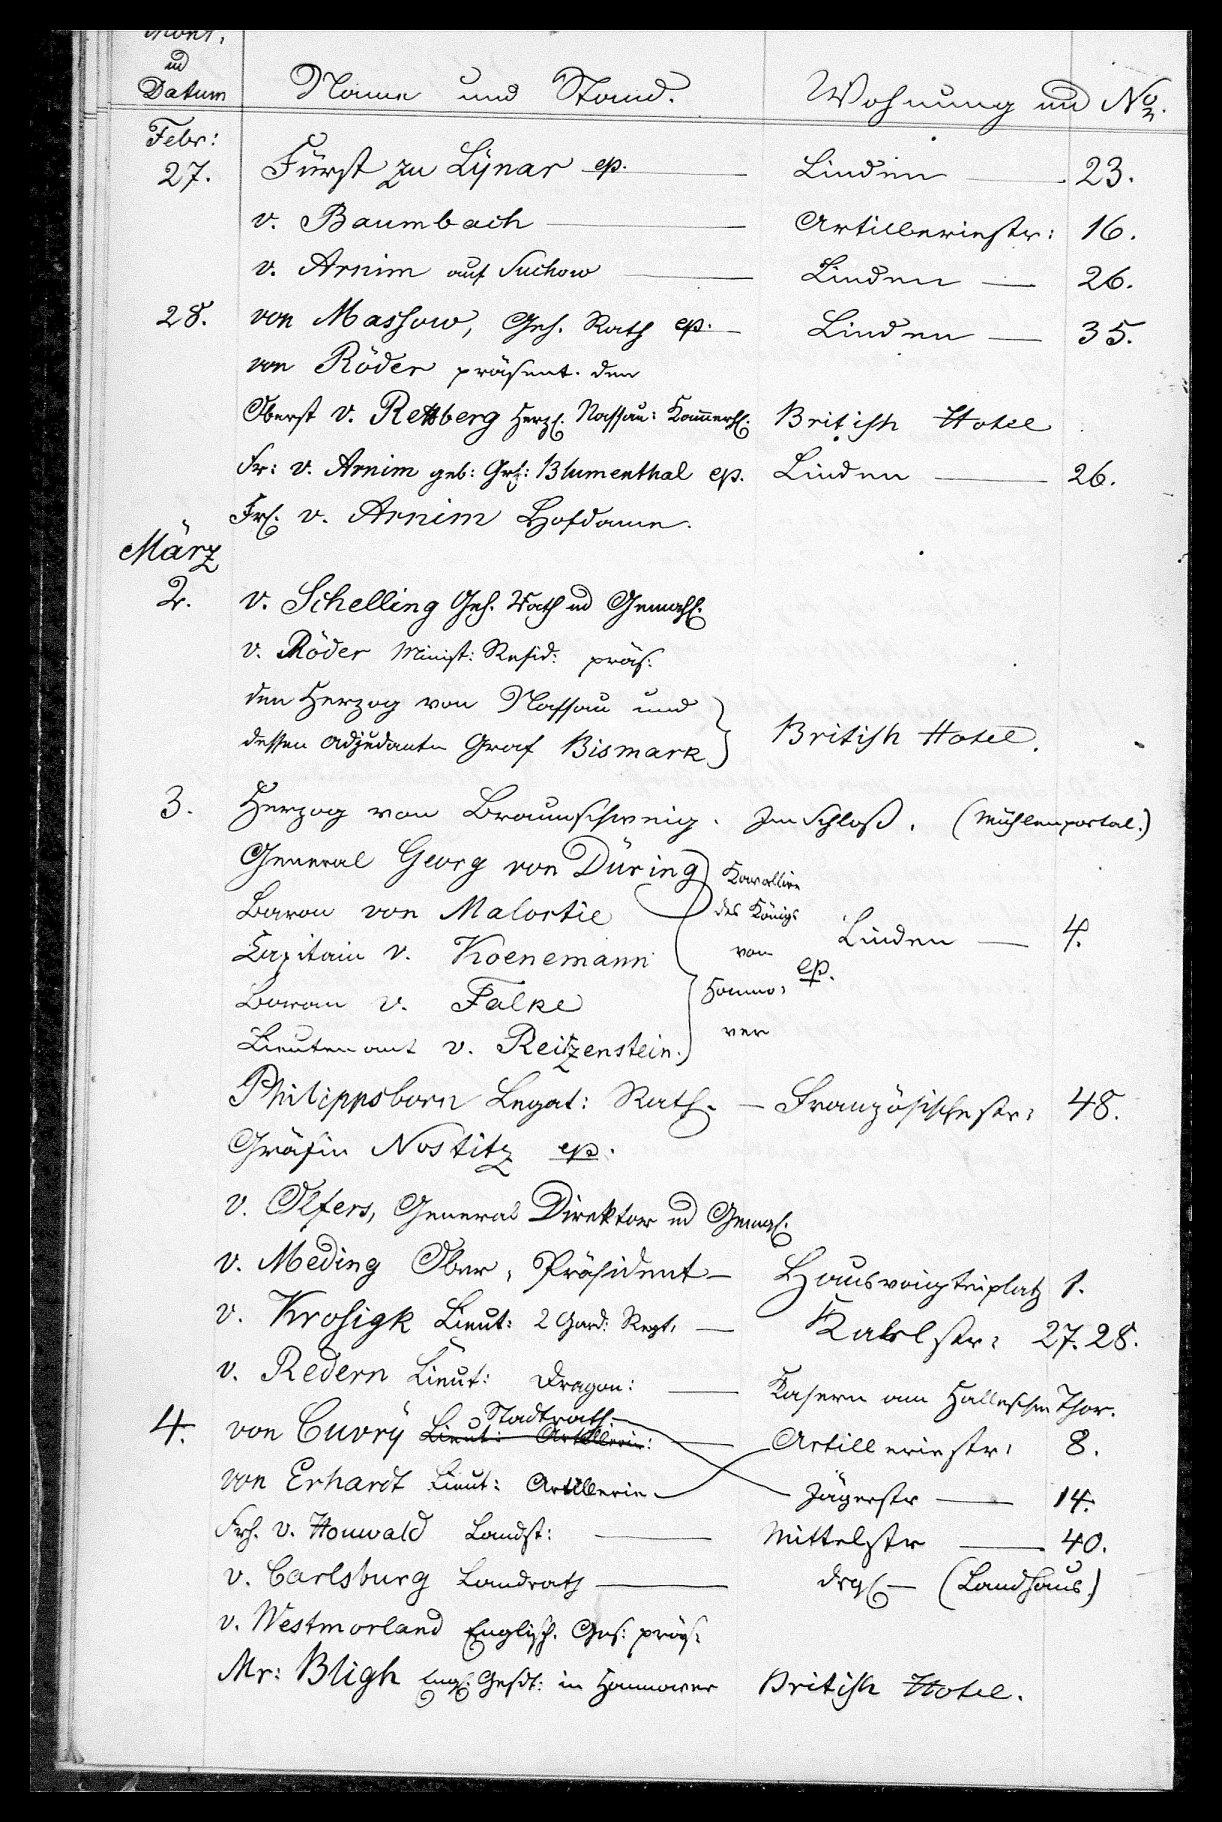 Mont,
ud
Datum Name und Stand. Wohnung und No.
Febr:
27. Fürst zu Lÿnar ep. Linden 23.
v. Baumbach Artilleriestr: 16.
v. Arnim auf Suckow Linden 26.
28. von Massow, Geh. Rath ep. Linden 35.
von Röder präsent. den
Oberst v. Rettberg Herzl. Nassau: Kammerh. British Hotel
Fr: v. Arnim geb: Grf: Blumenthal ep. Linden 26.
Frl. v. Arnim Hofdame.
März
2. v. Schelling Geh. Rath ud Gemahl.
v. Röder Minist: Resid: präs:
den Herzog von Nassau und
dessen Adjudanten Graf Bismark British Hotel.
3. Herzog von Braunschweig. Im Schloß. (Mühlenportal.)
General Georg von Düring Kavaliere
Baron von Malortie des Königs
Kapitain v. Koenemann von Linden 4.
Baron v. Falke Hanno: ep.
Lieutenant v. Reitzenstein. ver
Philippsborn Legat: Rath. Französischestr: 48.
Gräfin Nostitz ep.
v. Olfers, General Direktor ud Gemahl.
v. Meding Ober, Präsident Hausvoigteiplatz 1.
v. Krosigk Lieut: 2 Gard: Regt. Karlstr: 27.28.
v. Redern Lieut: Dragon: Kasern am Halleschen Thor.
Stadtrath
4. von Cuvrÿ Lieut: Artillerie: Artilleriestr: 8.
von Erhardt Lieut: Artillerie Jägerstr 14.
Frh. v. Houwald Landst: Mittelstr 40.
v. Carlsburg Landrath drgl (Landhaus)
v. Westmorland Englisch. Ges: präs:
Mr: Bligh Engl: Gesdt: in Hannover British Hotel.